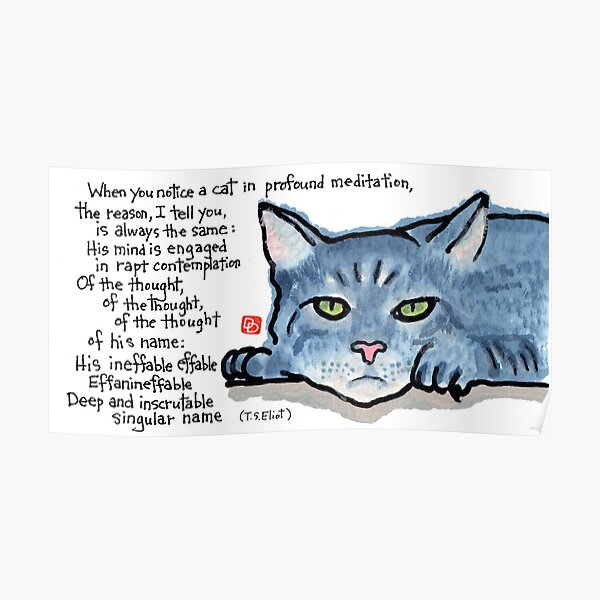 When you notice a cat in profound meditation,
the reason, I tell you,
is always the same:
His mind is engaged
in rapt contemplation
Of the thought,
of the thought,
of the thought
of his name:
His ineffable effable
Effanineffable
Deep and inscrutable
singular name (T.S.Eliot)